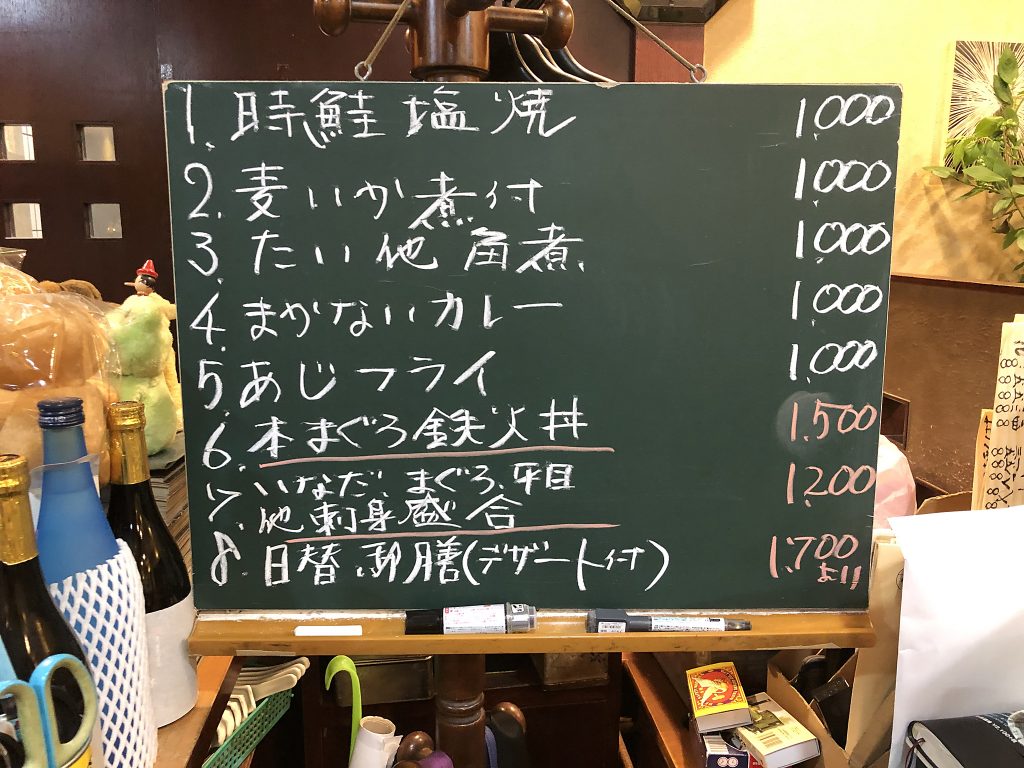 1. 時鮭 塩焼 1,000
2. 麦いか煮付 1,000
3. たい他 角煮 1,000
4. まかないカレー 1,000
5. あじフライ 1,000
6. 本まぐろ鉄火丼 1,500
7. いなだ、まぐろ、平目 1,200
他刺身盛合
8. 日替り御膳(デザート付) 1,700
より